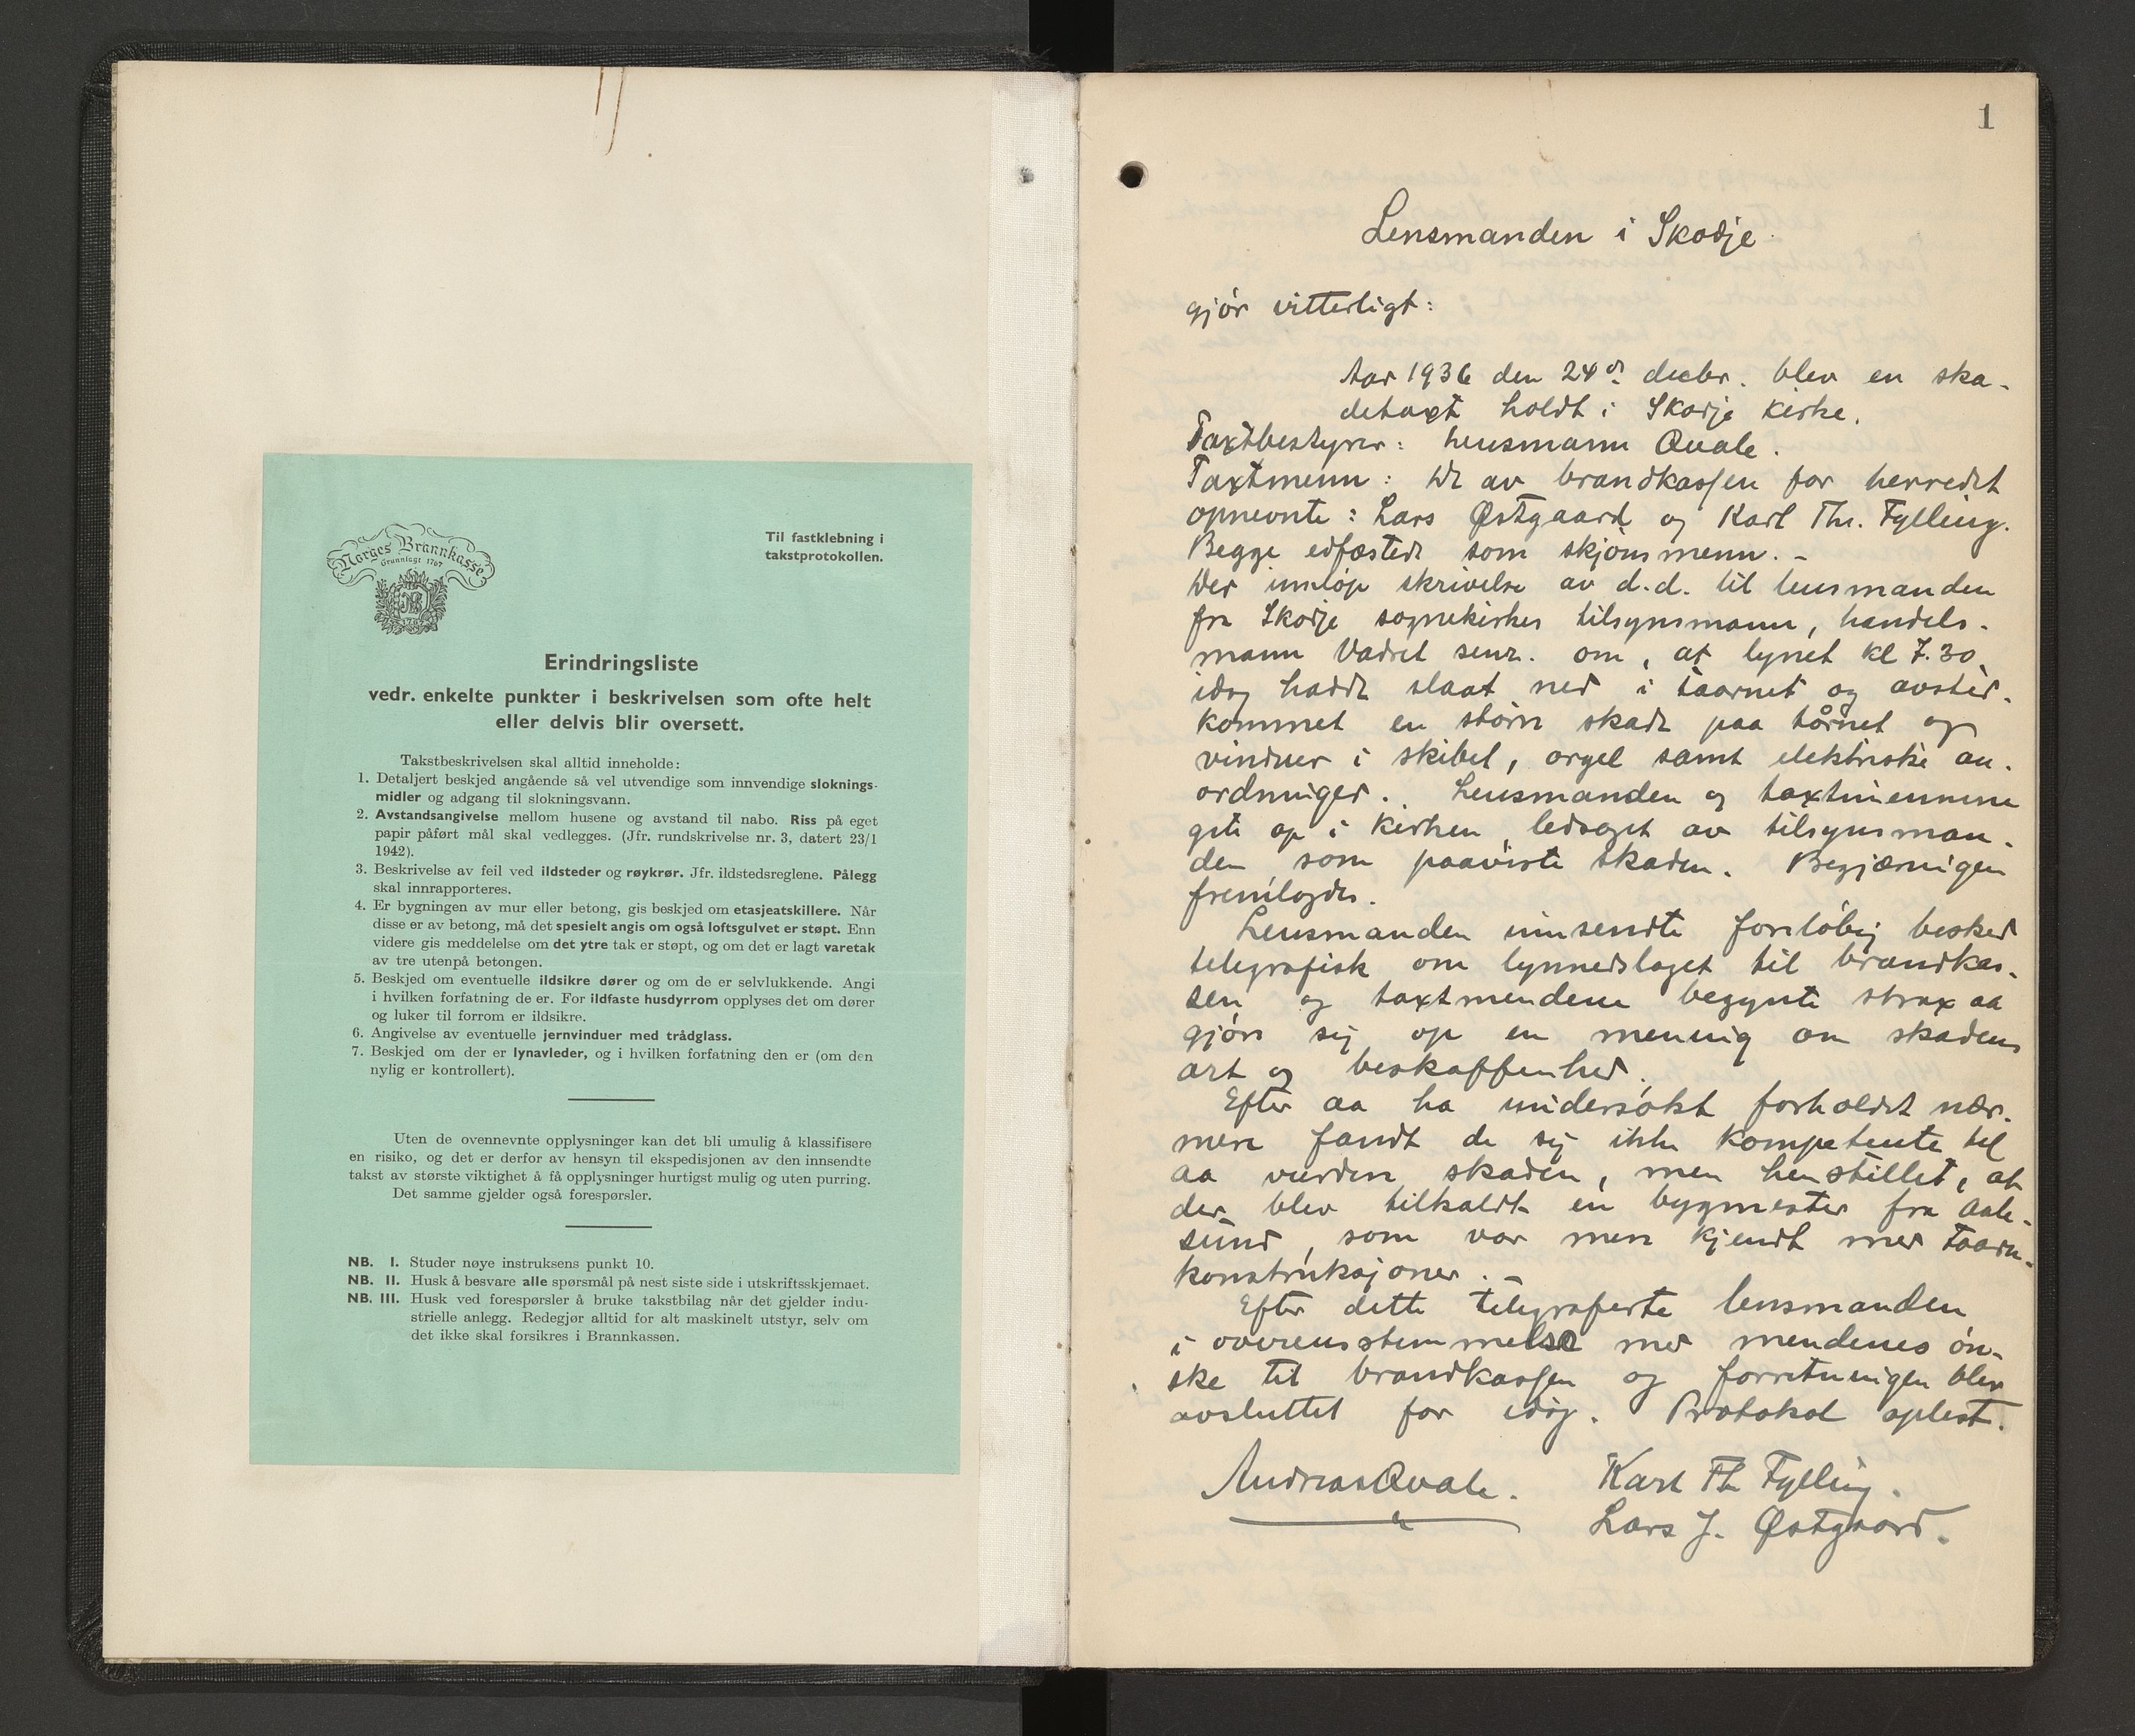 Norges Brannkasse
Grunnlagt 1767
NB
1767
Til fastklebning i
takstprotokollen.
Erindringsliste
vedr. enkelte punkter i beskrivelsen som ofte helt
eller delvis blir oversett.
Takstbeskrivelsen skal alltid inneholde:
1. Detaljert beskjed angående så vel utvendige som innvendige sloknings-
midler og adgang til slokningsvann.
2. Avstandsangivelse mellom husene og avstand til nabo. Riss på eget
papir påført mål skal vedlegges. (Jfr. rundskrivelse nr. 3, datert 23/1
1942).
3. Beskrivelse av feil ved ildsteder og røykrør. Jfr. ildstedsreglene. Pålegg
skal innrapporteres.
4. Er bygningen av mur eller betong, gis beskjed om etasjeatskillere. Når
disse er av betong, må det spesielt angis om også loftsgulvet er støpt. Enn
videre gis meddelelse om det ytre tak er støpt, og om det er lagt varetak
av tre utenpå betongen.
5. Beskjed om eventuelle ildsikre dører og om de er selvlukkende. Angi
i hvilken forfatning de er. For ildfaste husdyrrom opplyses det om dører
og luker til forrom er ildsikre.
6. Angivelse av eventuelle jernvinduer med trådglass.
7. Beskjed om der er lynavleder, og i hvilken forfatning den er (om den
nylig er kontrollert).
Uten de ovennevnte opplysninger kan det bli umulig å klassifisere
en risiko, og det er derfor av hensyn til ekspedisjonen av den innsendte
takst av største viktighet å få opplysninger hurtigst mulig og uten purring.
Det samme gjelder også forespørsler.
NB. I. Studer nøye instruksens punkt 10.
NB. II. Husk å besvare alle spørsmål på nest siste side i utskriftsskjemaet.
NB. III. Husk ved forespørsler å bruke takstbilag når det gjelder indu-
strielle anlegg. Redegjør alltid for alt maskinelt utstyr, selv om
det ikke skal forsikres i Brannkassen.
1
Lensmanden i Skodje
gjör vitterligt:
Aar 1936 den 24de decbr. blev en ska-
detaxt holdt i Skodje kirke.
Taxtbestyrer: lensmann Qvale.
Taxtmenn: De av brandkassen for herredet
opnevnte: Lars Østgaard og Karl Th. Fylling.
Begge edfæstede som skjönsmenn. -
Der innlöp skrivelse av d.d. til lensmanden
fra Skodje sognekirkes tilsynsmann, handels-
mann Vadset senr. om, at lynet kl 7.30
idag hadde slaat ned i taarnet og avsted-
kommet en större skade paa tårnet og
vinduer i skibet, orgel samt elektriske an-
ordninger. Lensmanden og taxtmennene
gik op i kirken ledsaget av tilsynsman-
den som paaviste skaden. Begjæringen
fremlagdes.
Lensmanden innsendte foreløbig besked
telegrafisk om lynnedslaget til brandkas-
sen og taxtmendene begynte strax aa
gjöre sig op en mening om skadens
art og beskaffenhed.
Efter aa ha undersökt forholdet nær-
mere fandt de sig ikke kompetente til
aa vurdere skaden, men henstillet, at
der blev tilkaldt en bygmester fra Aale-
sund, som var mere kjendt med taarn-
konstruksjoner. -
Efter dette telegraferte lensmanden
i overensstemmelse med mendenes ön-
ske til brandkassen og forretningen blev
avsluttet for idag. Protokol oplest.
Andreas Qvale. Karl Th Fylling.
Lars J. Østgaard.